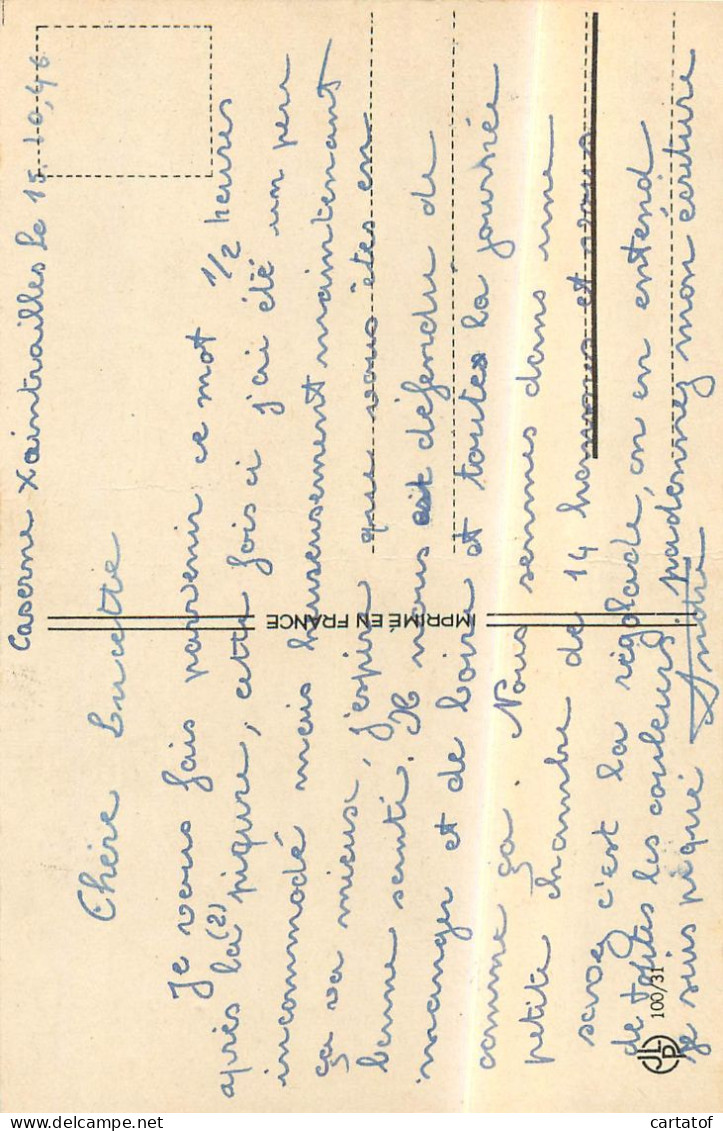 Caserne Xaintrailles le 15.10.46
Chère Lucette
Je vous fais parvenir ce mot 1/2 heures
après la (2) piqure, cette fois ci j'ai été un peu
incommodé mais heureusement maintenant
ça va mieux, j'espère que vous êtes en
bonne santé. Il nous est défendu de
manger et de boire et toutes la journée
comme ça. Nous sommes dans une
petite chambre de 14 hommes et vous
savez c'est la rigolade, on en entend
de toutes les couleurs, padonnez mon écriture
je suis piqué André
IMPRIMÉ EN FRANCE
JLP
100/31
© cartatof